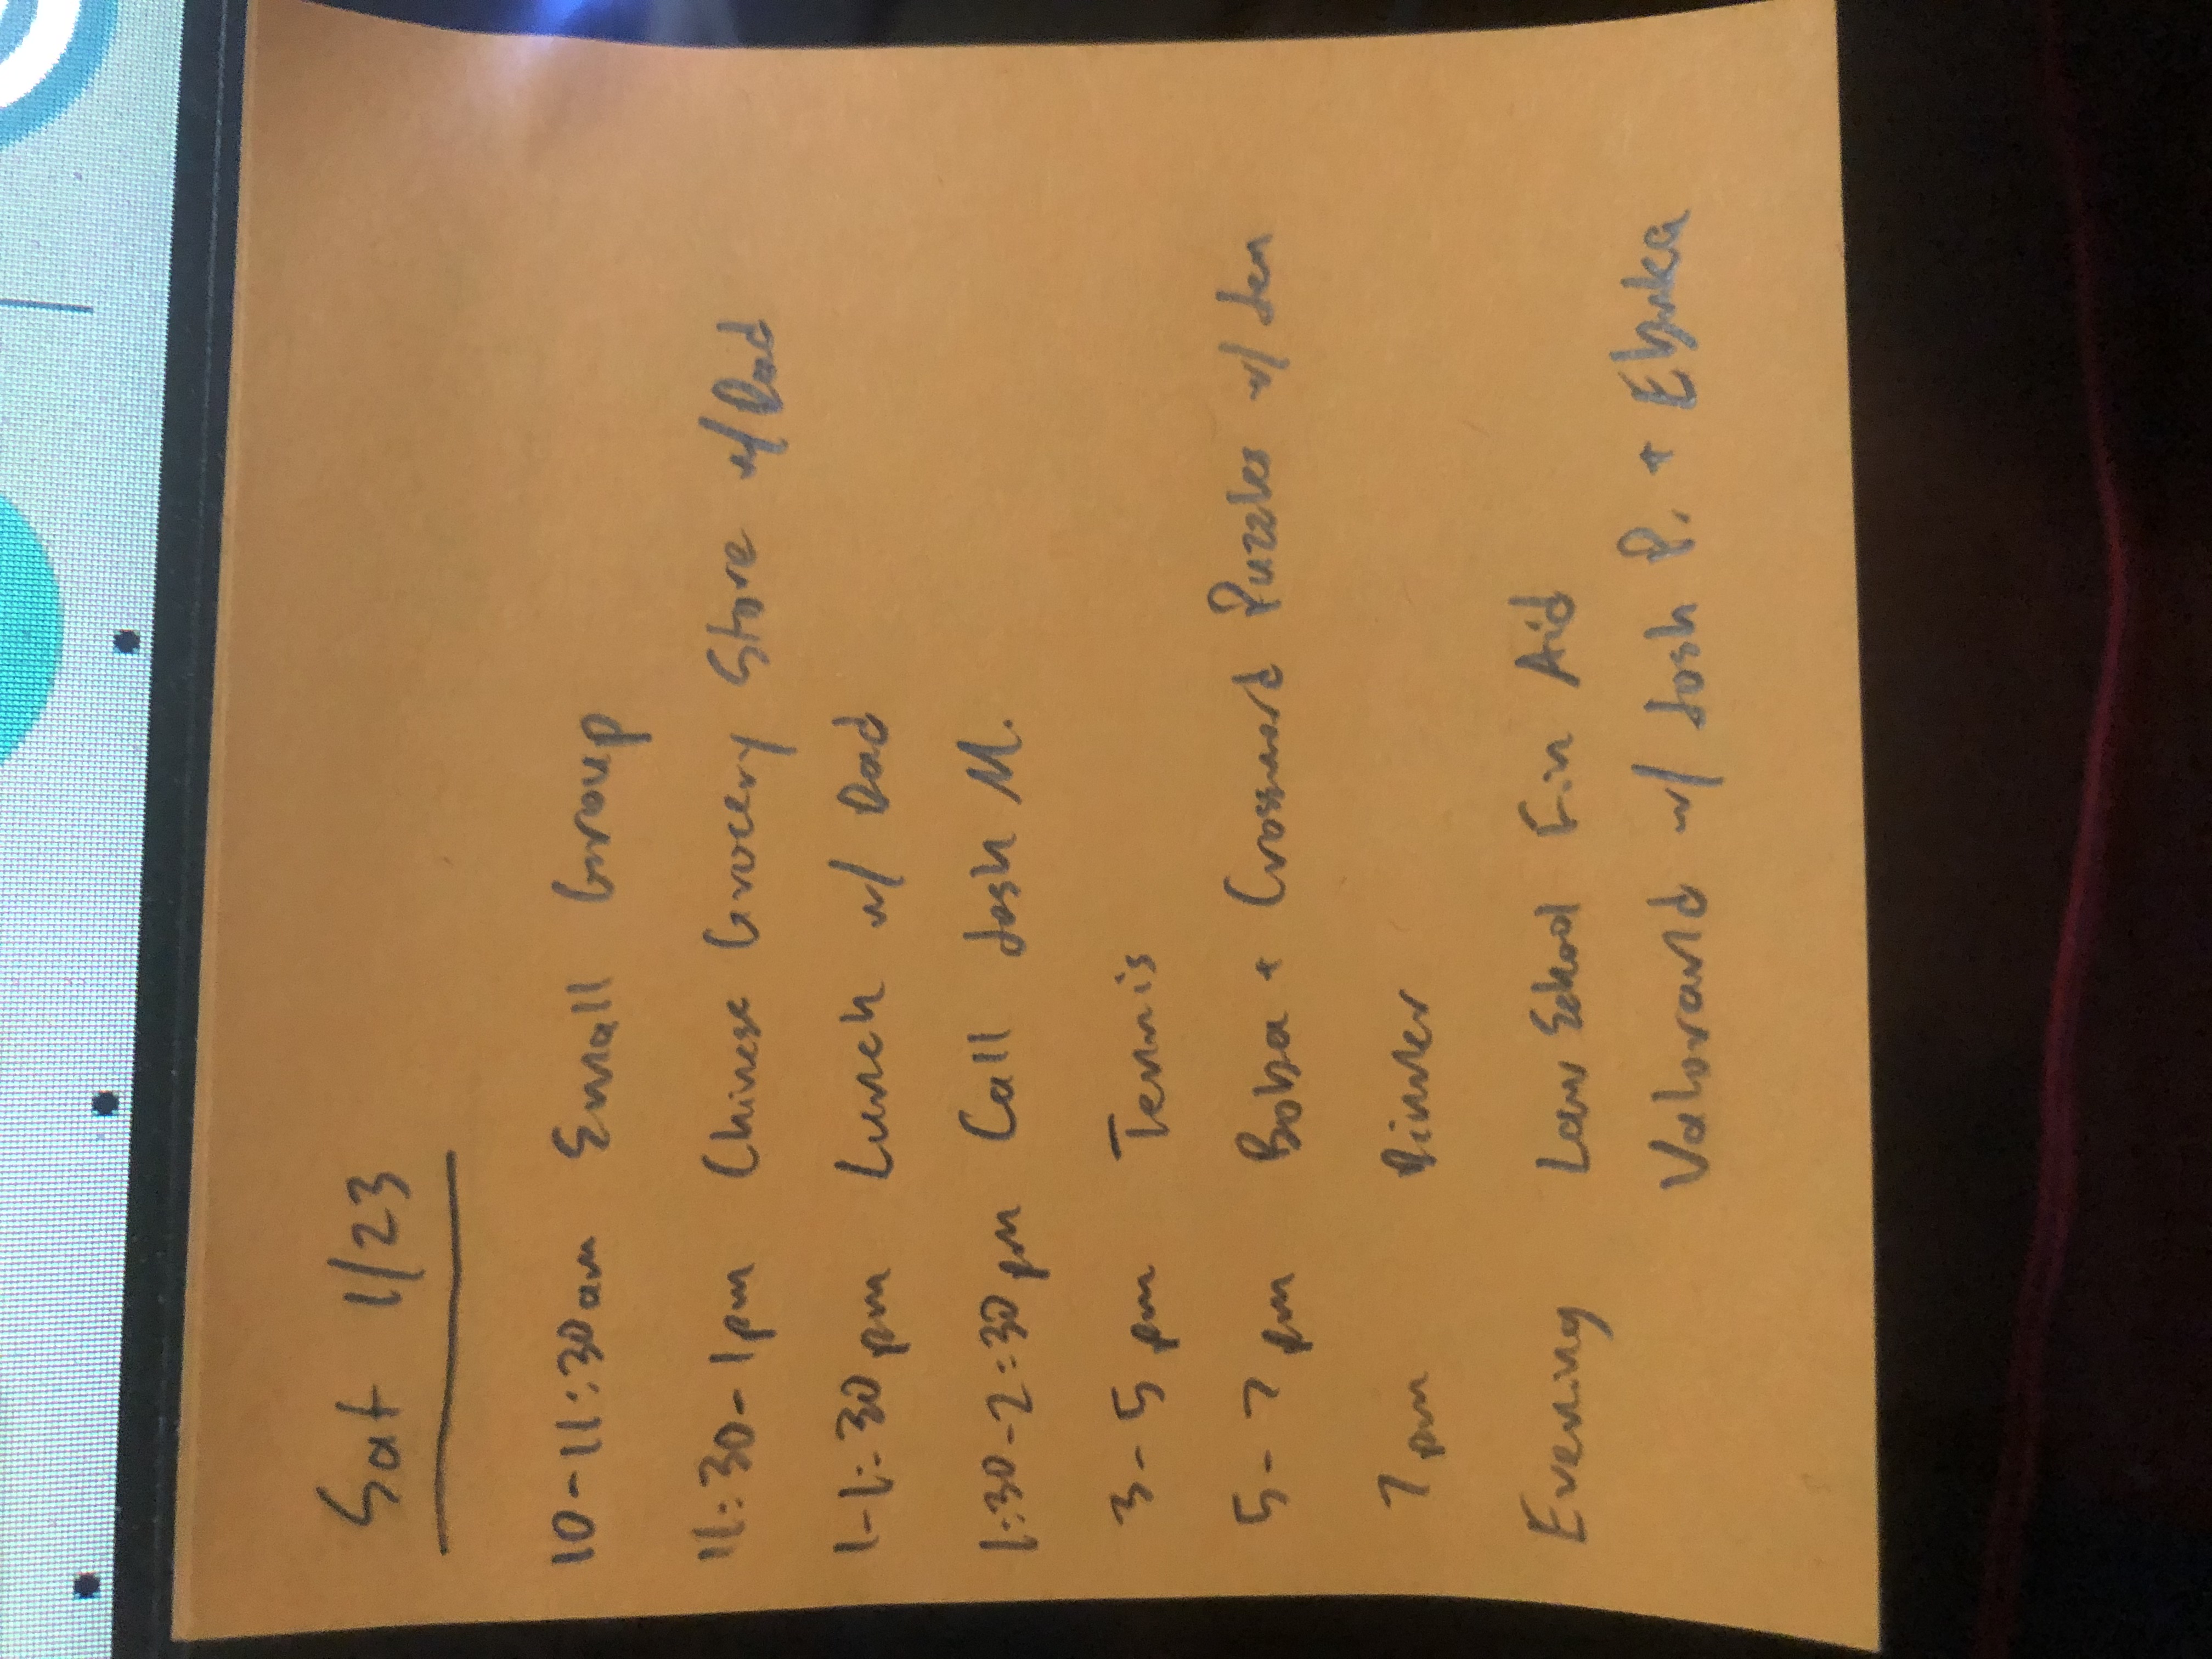 Sat 1/23
10-11:30am Small Group
11:30-1pm Chinese Grocery Store w/ Dad
1-1:30pm Lunch w/ Dad
1:30-2:30pm Call Josh M.
3-5pm Tennis
5-7pm Boba + Crossword Puzzles w/ Jen
7pm Dinner
Evening Law School Fin Aid
Valorand w/ Josh P. + Ebuka